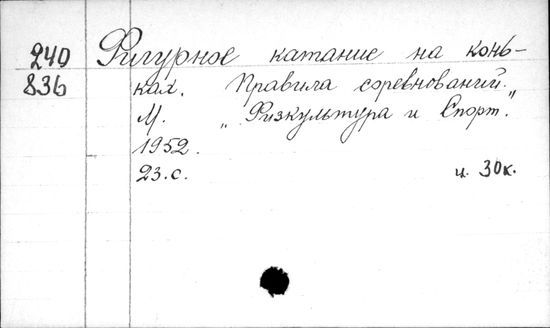 240 Фигурное катание на конь-
836 ках. Правила соревнований.
М. „Физкультура и Спорт.“
1952.
23.с. ц. 30к.